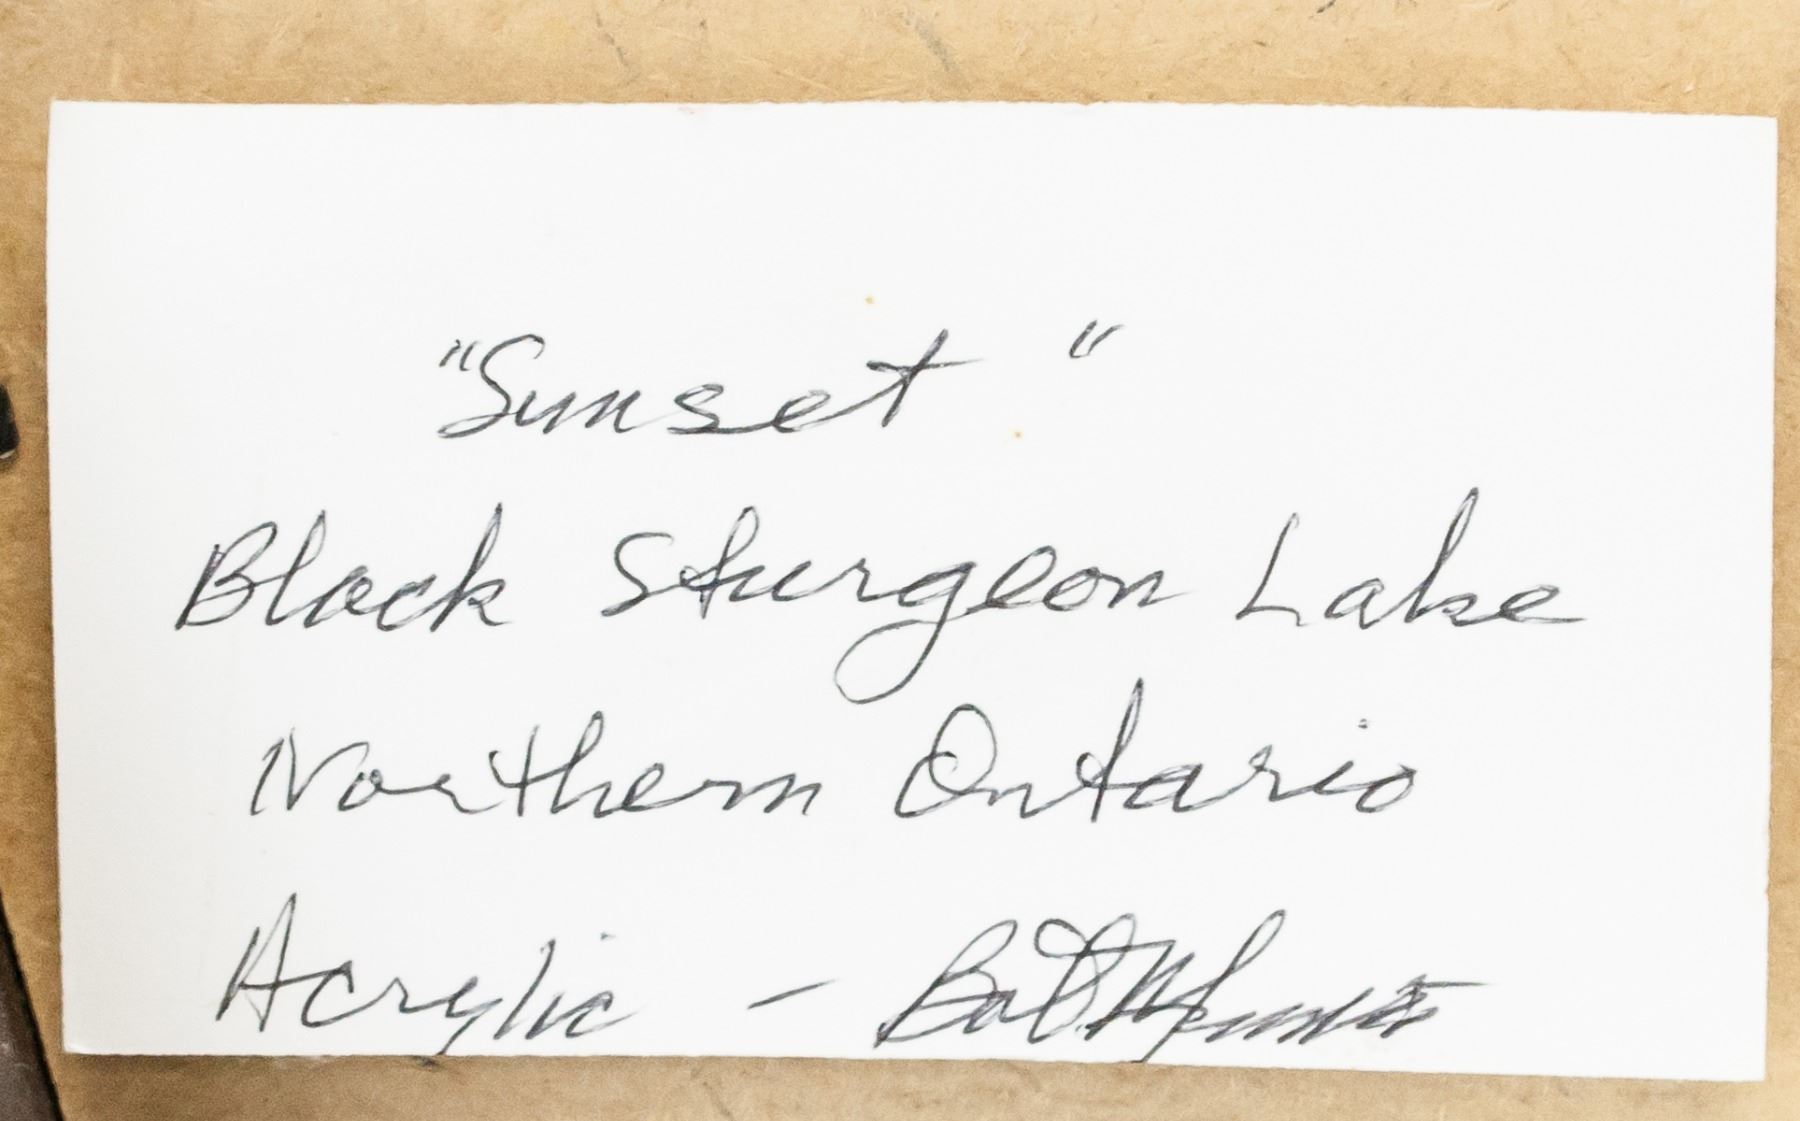 "Sunset"
Black Sturgeon Lake
Northern Ontario
Acrylic -